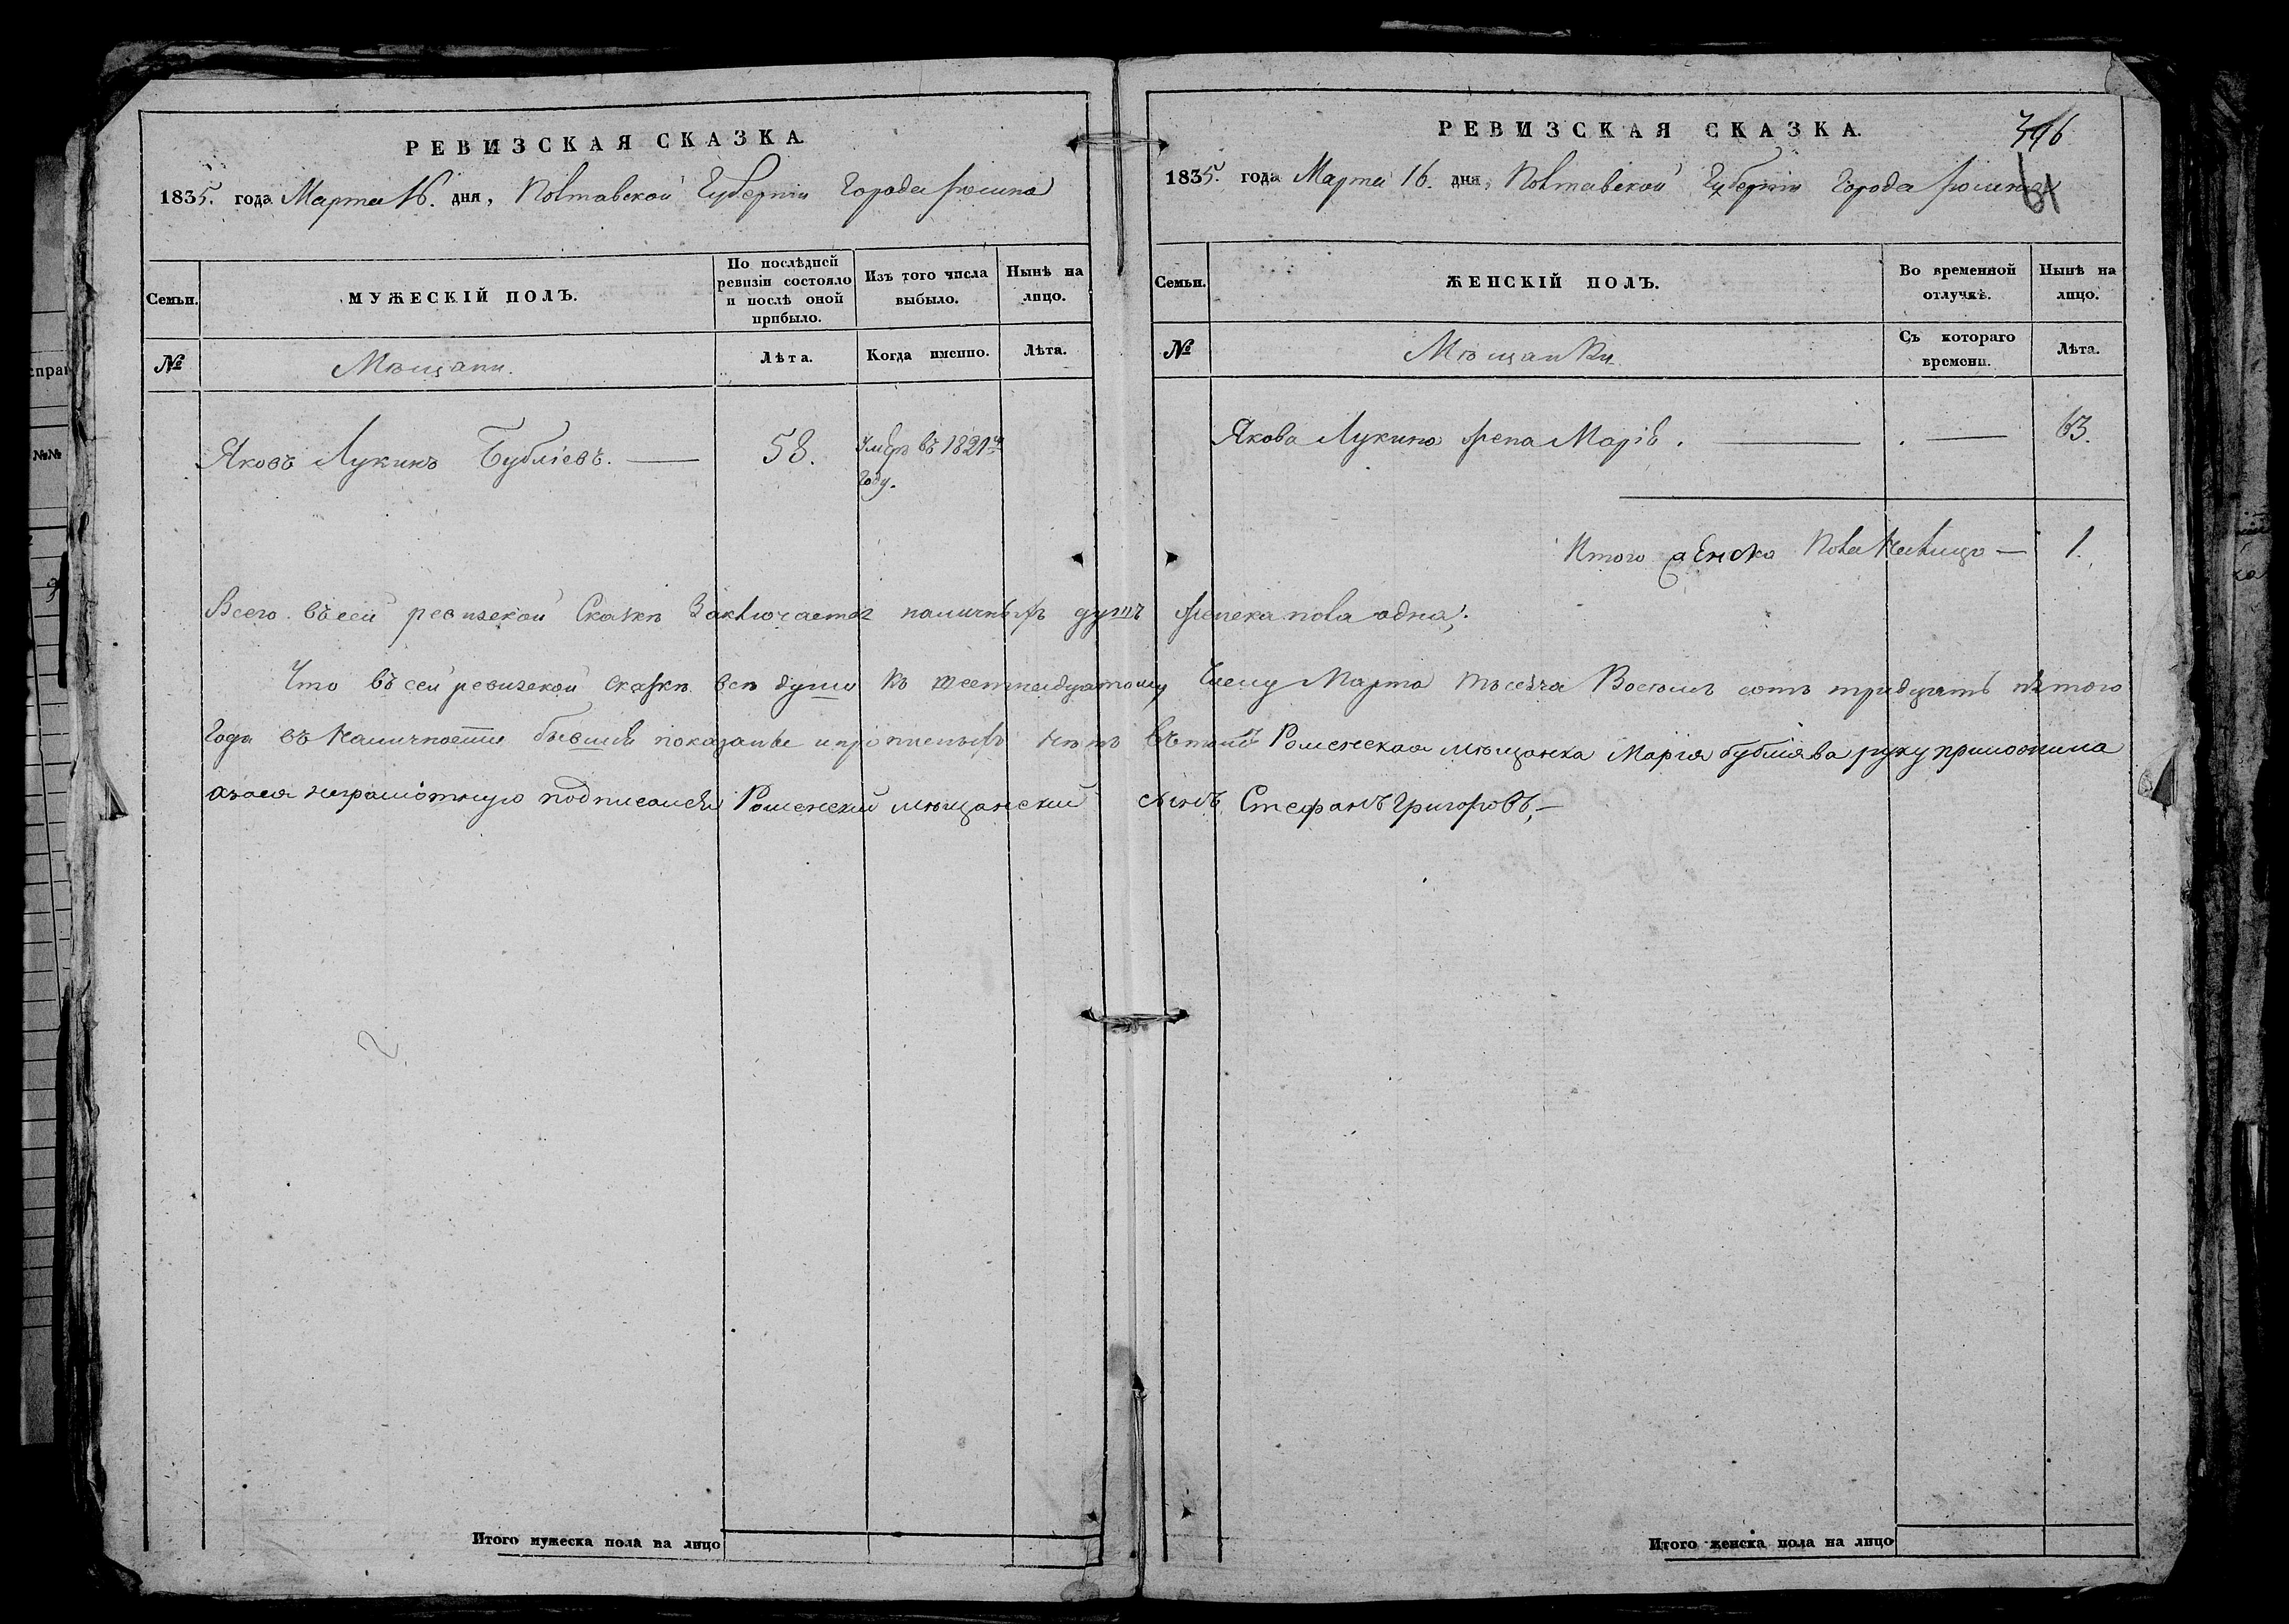 РЕВИЗСКАЯ СКАЗКА.
1835. года Марта 16. дня, Полтавской Губернiи Города Ромна
Семьи.
МУЖЕСКIЙ ПОЛЪ.
По послѣдней ревизiи состояло и послѣ оной прибыло.
Изъ того числа выбыло.
Нынѣ на лицо.
№
Мѣщани.
Лѣта.
Когда именно.
Лѣта.
Яковъ Лукинъ Бублiевъ. — 58. Умеръ въ 1821м
году.
РЕВИЗСКАЯ СКАЗКА.
716
61
1835. года Марта 16. дня, Полтавской Губернiи Города Ромна
Семьи.
ЖЕНСКIЙ ПОЛЪ.
Во временной отлучкѣ.
Нынѣ на лицо.
№
Мѣщанки
Съ котораго времени.
Лѣта.
Якова Лукина жена Марiя. — . — 63.
Итого женска пола налицо — 1.
Всего въ сей ревизской Сказкѣ Заключается наличныхъ душъ женска пола одна;
Что въ сей ревизской сказкѣ всѣ души къ шестнадцатому Числу Марта тысяча Восемь сотъ тридцать пятого
Года въ Наличности бывшiя показаны и прописныхъ нѣтъ въ томъ Роменская мѣщанка Марiя Бублиева руку приложила
а за ея неграмотную подписался Роменский мѣщанский сынъ Стефанъ Григоровъ,—
Итого мужеска пола на лицо
Итого женска пола на лицо
№№